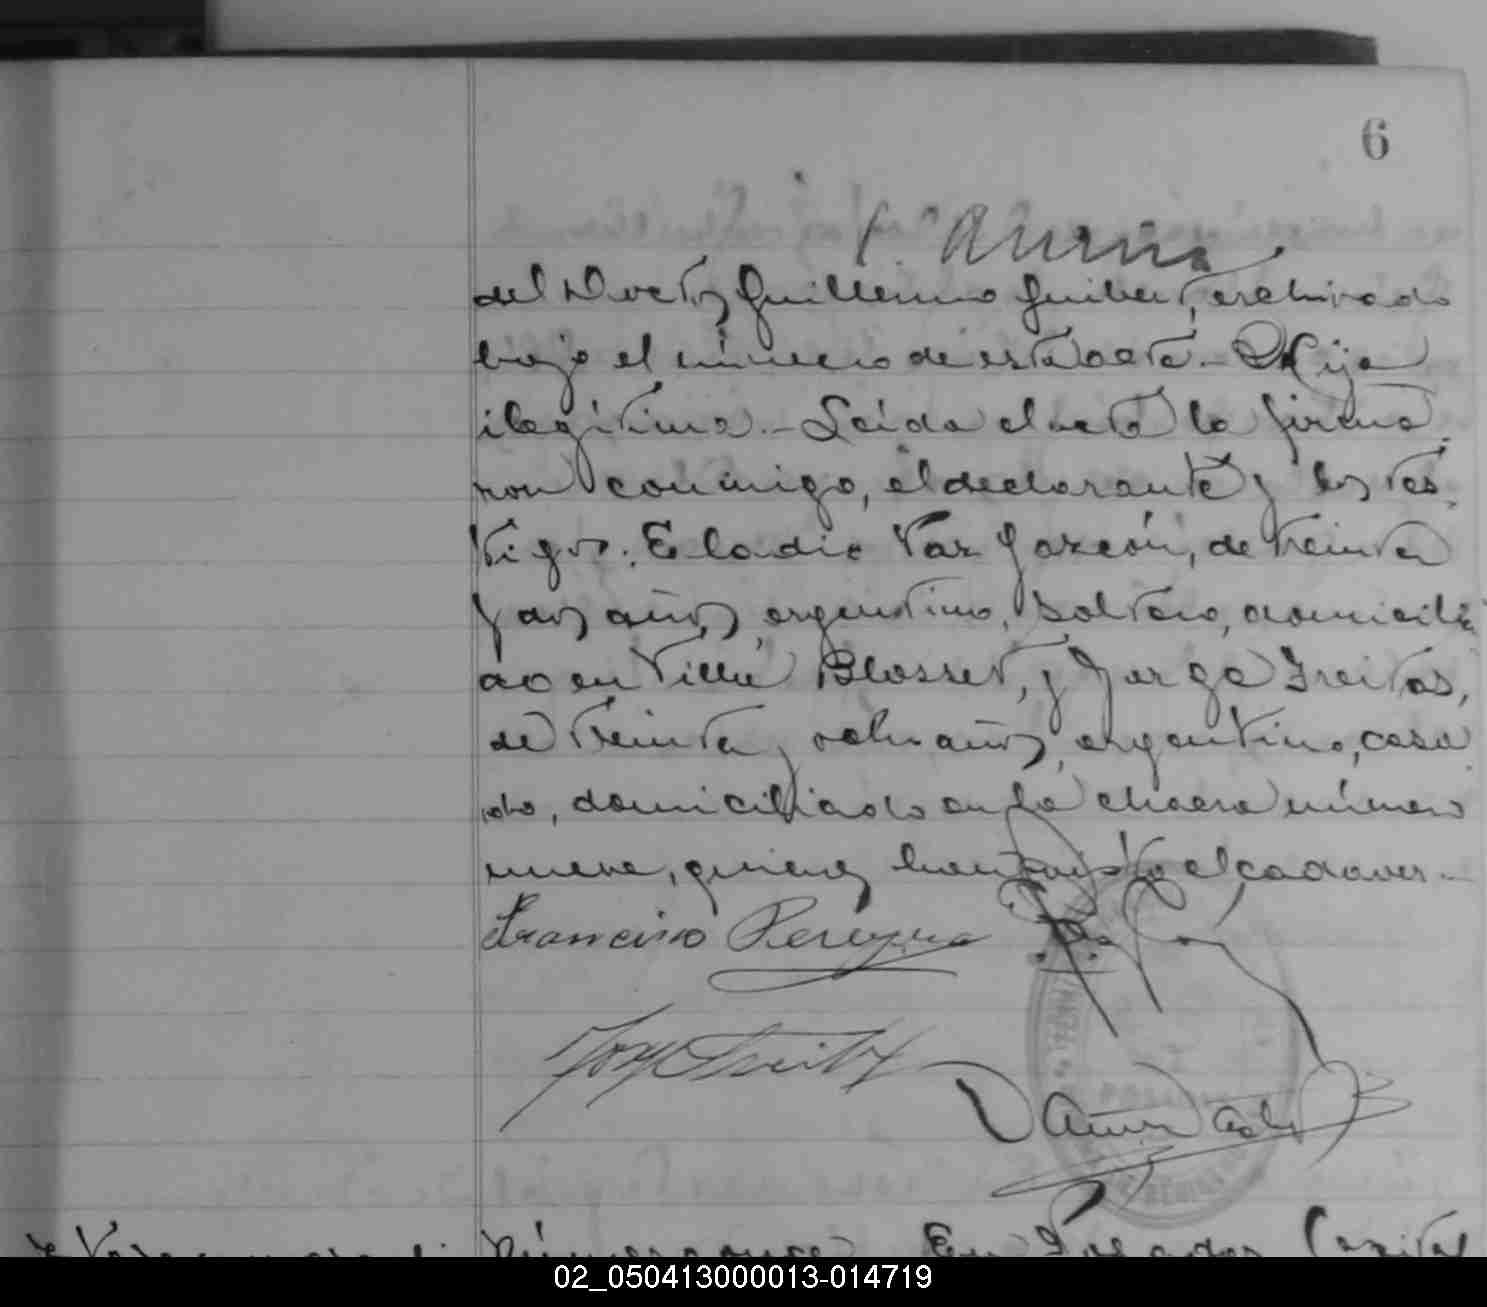 6
del Doctor Guillermo Guibert, archivado
bajo el número de esta acta.- Hija
ilegítima.- Leída el acta la firma
ron conmigo, el declarante y los tes
tigos: Eladio Vaz Garzón, de treinta
y dos años, argentino, soltero, domicilia
do en Villa Blosset, y Jorge Freitas,
de treinta y ocho años, argentino, casa
do, domiciliado en la chacra número
nueve, quienes han visto el cadaver.-
Francisco Pereyra
Jorge Freitas
Número once En Posadas Capital
02_050413000013-014719